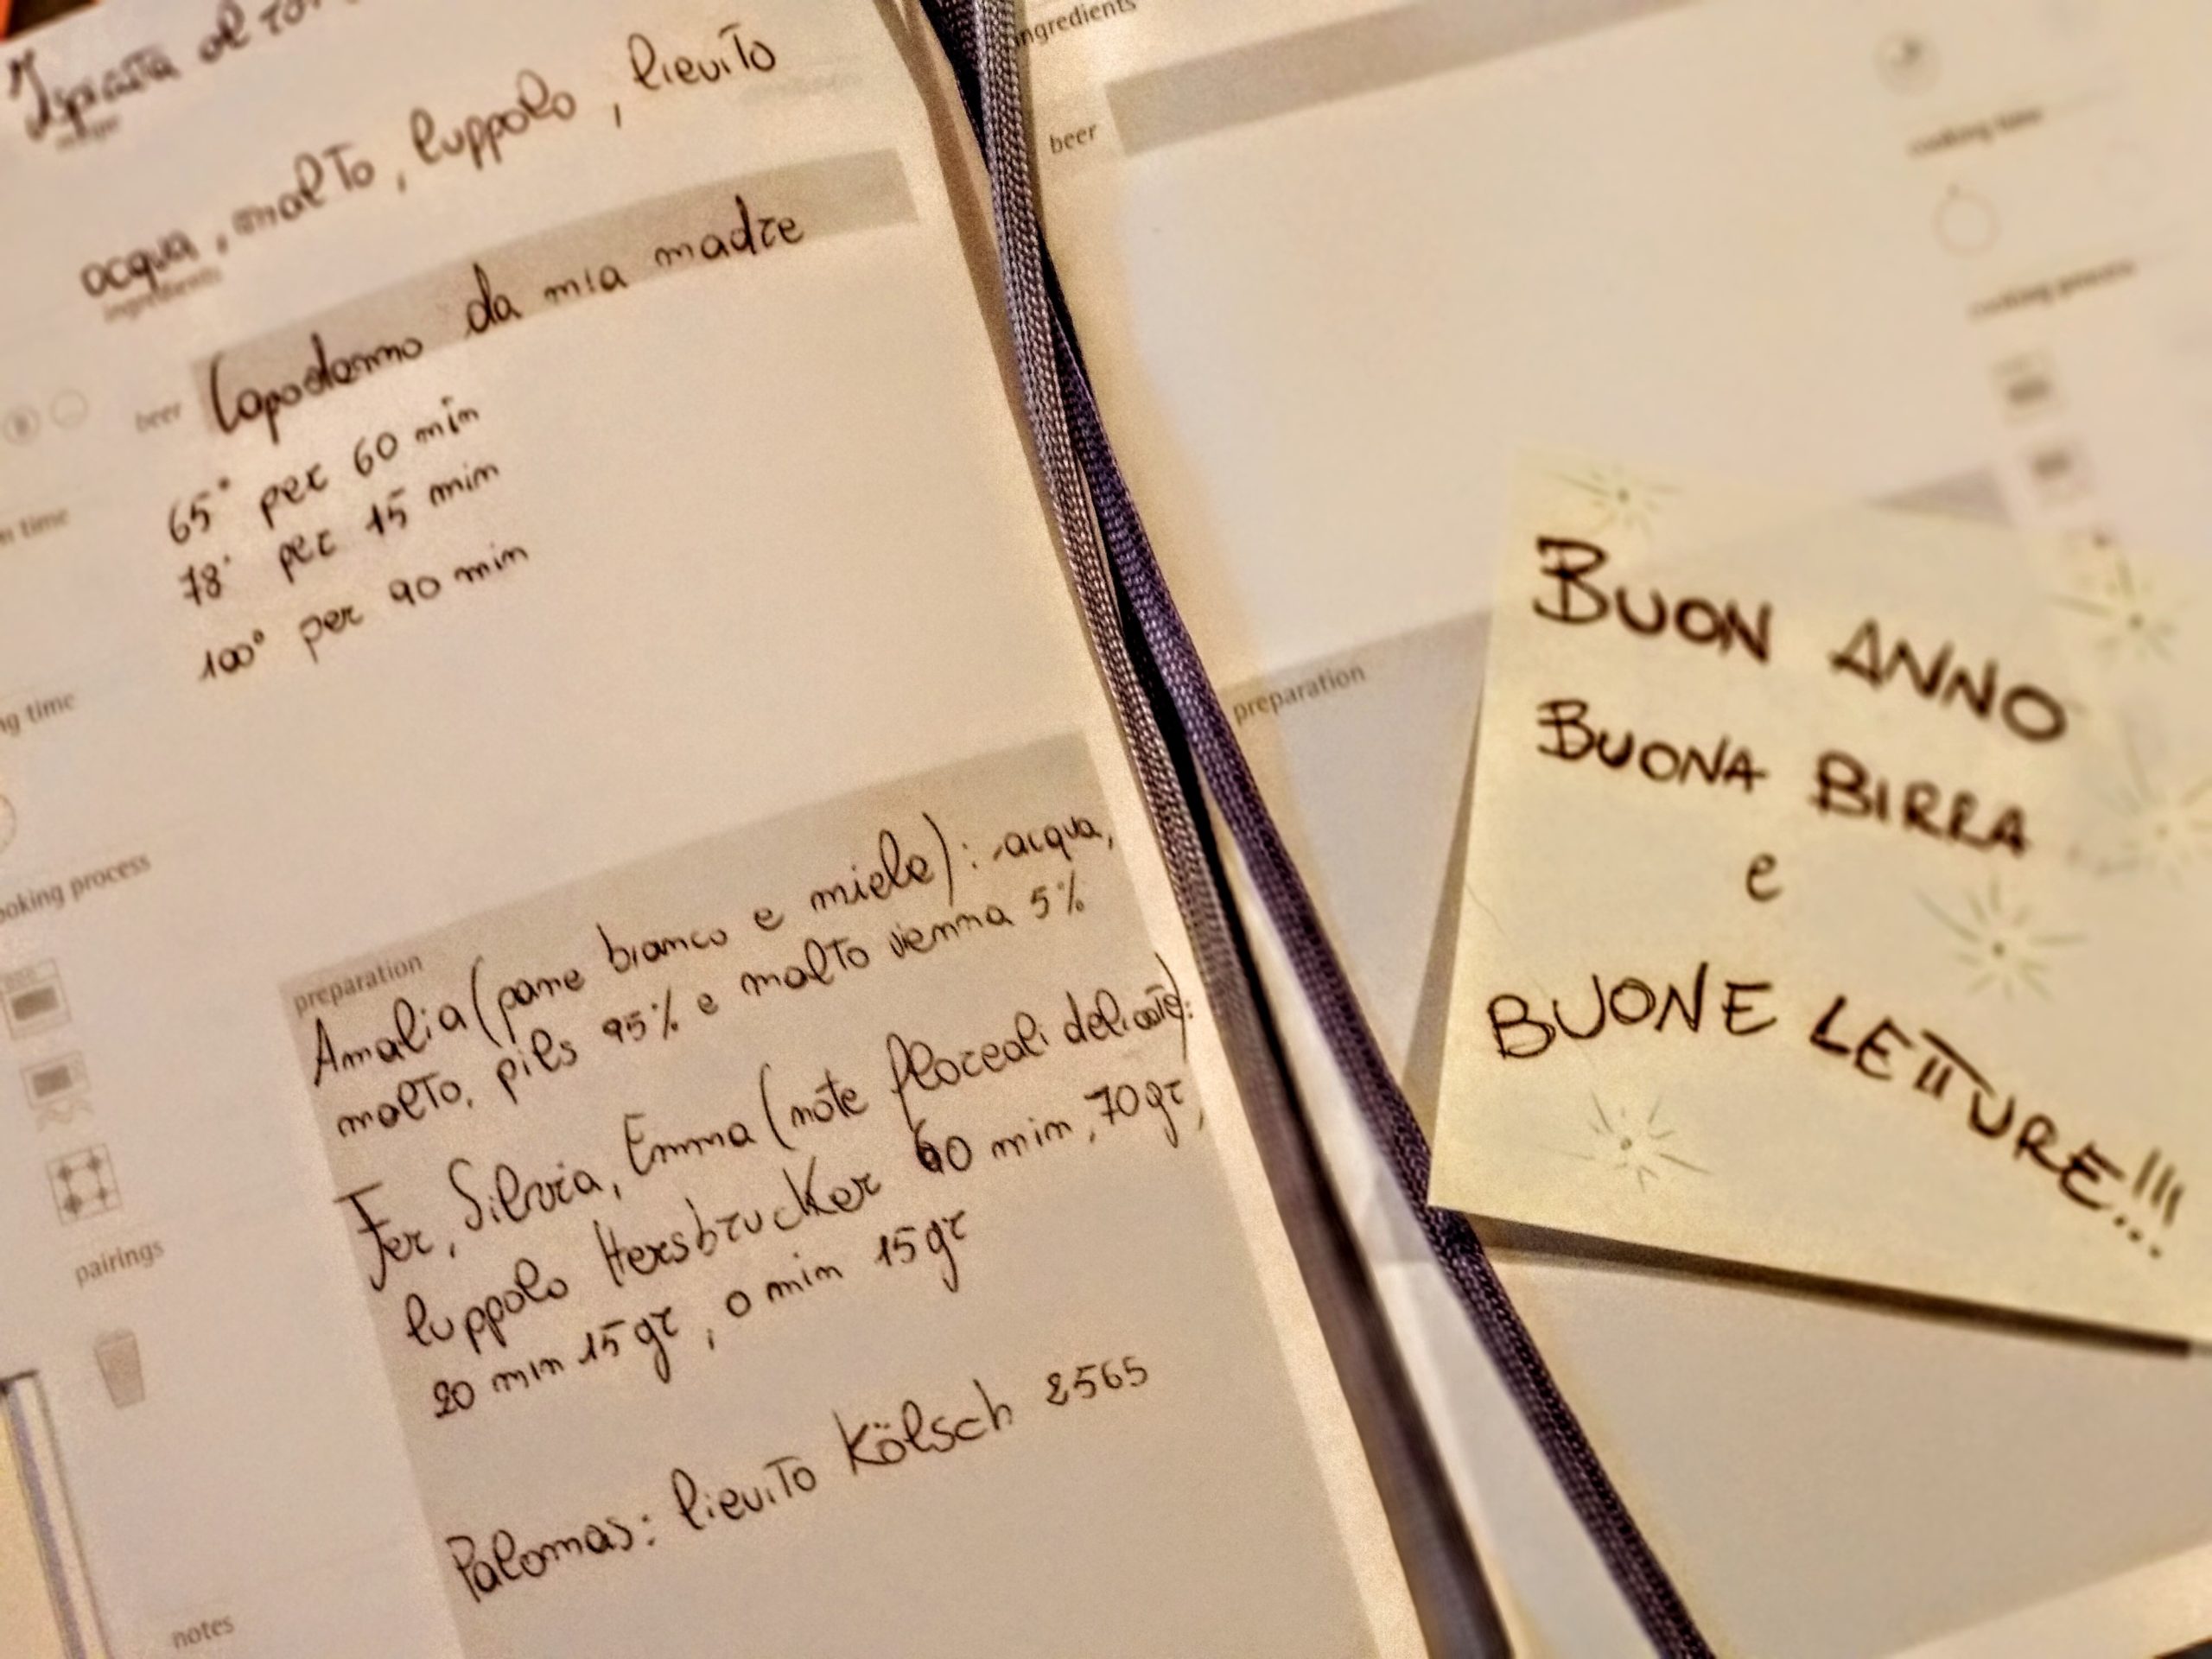 Ispirata al
acqua, malto, luppolo, lievito
ingredients
beer Capodanno da mia madre
65° per 60 min
78° per 15 min
100° per 90 min
time
time
cooking process
preparation
Amalia (pane bianco e miele): acqua,
malto, pils 95% e malto vienna 5%
Fer, Silvia, Emma (note floreali delicate):
luppolo Hersbrucker 60 min, 70gr,
20 min 15gr, 0 min 15gr
Palomas: lievito Kölsch 2565
pairings
notes
ingredients
beer
cooking time
cooking process
preparation
BUON ANNO
BUONA BIRRA
e
BUONE LETTURE!!!